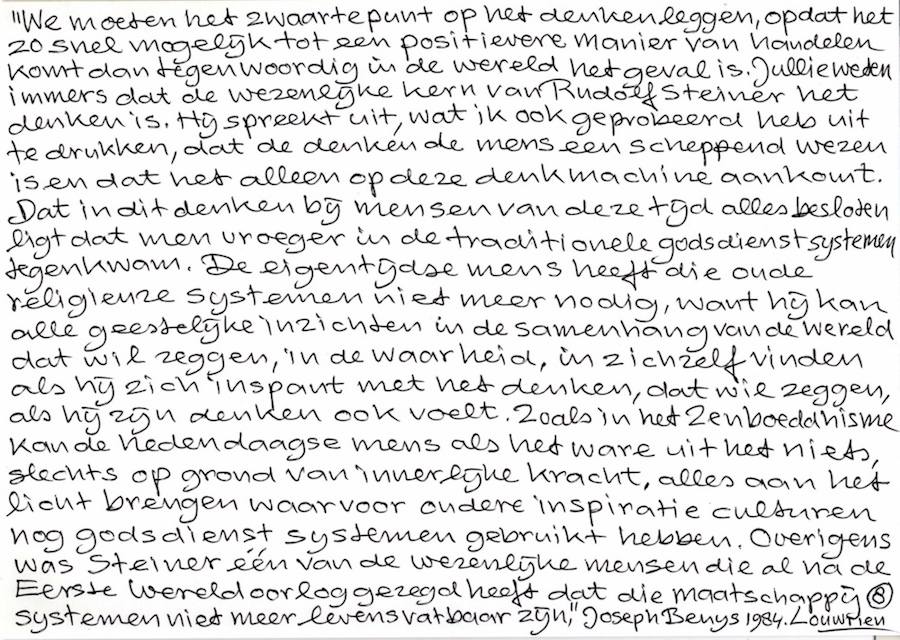 "We moeten het zwaartepunt op het denken leggen, opdat het
zo snel mogelijk tot een positievere manier van handelen
komt dan tegenwoordig in de wereld het geval is. Jullie weten
immers dat de wezenlijke kern van Rudolf Steiner het
denken is. Hij spreekt uit, wat ik ook geprobeerd heb uit
te drukken, dat de denkende mens een scheppend wezen
is en dat het alleen op deze denkmachine aankomt.
Dat in dit denken bij mensen van deze tijd alles besloten
ligt dat men vroeger in de traditionele godsdienstsystemen
tegenkwam. De eigentijdse mens heeft die oude
religieuze systemen niet meer nodig, want hij kan
alle geestelijke inzichten in de samenhang van de wereld
dat wil zeggen, in de waarheid, in zichzelf vinden
als hij zich inspant met het denken, dat wil zeggen,
als hij zijn denken ook voelt. Zoals in het Zenboeddhisme
kan de hedendaagse mens als het ware uit het niets,
slechts op grond van innerlijke kracht, alles aan het
licht brengen waarvoor oudere inspiratie culturen
nog godsdienst systemen gebruikt hebben. Overigens
was Steiner één van de wezenlijke mensen die al na de
Eerste Wereldoorlog gezegd heeft dat die maatschappij 8
systemen niet meer levensvatbaar zijn," Joseph Beuys 1984. Louwrien